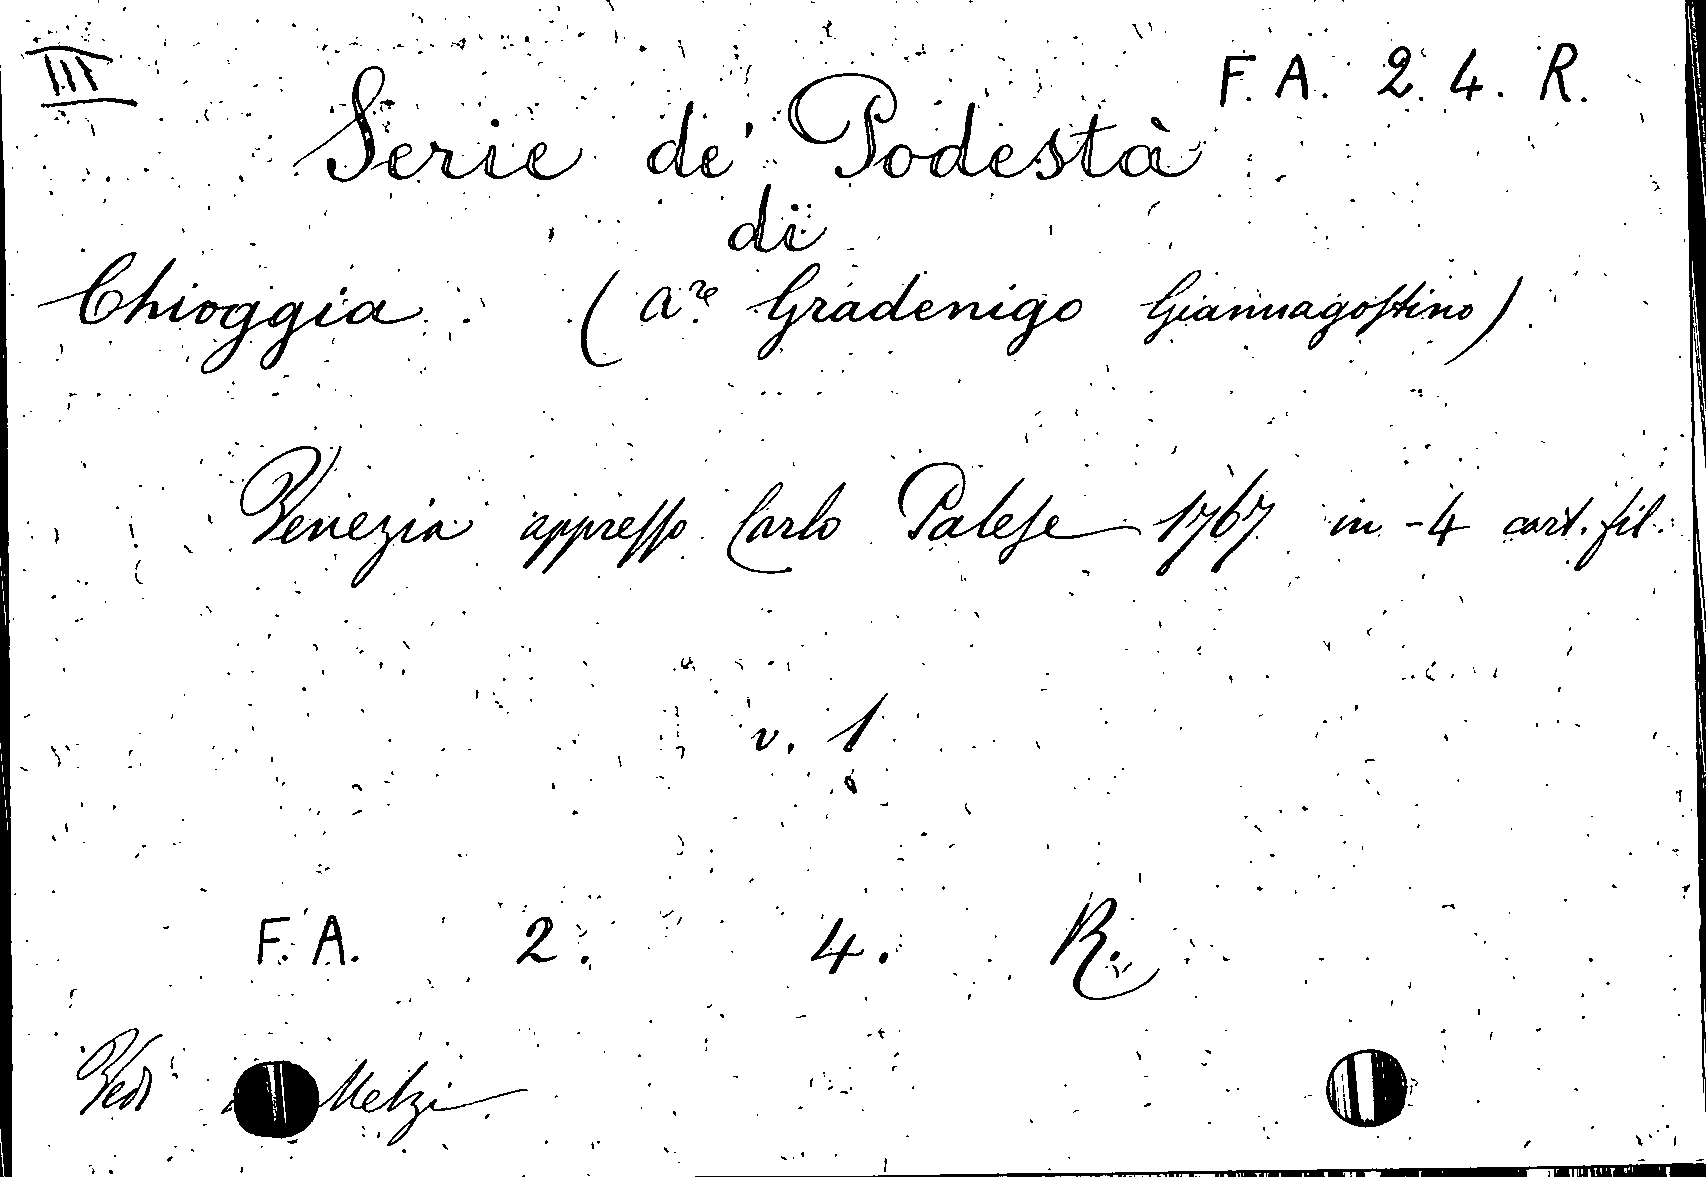 III
F. A. 2. 4. R.
Serie de' Podestà
di
Chioggia (Are Gradenigo Giannagostino)
Venezia appresso Carlo Palese 1767 in-4 cart. fil.
v. 1
F. A. 2. 4. R.
Vedi Melzi